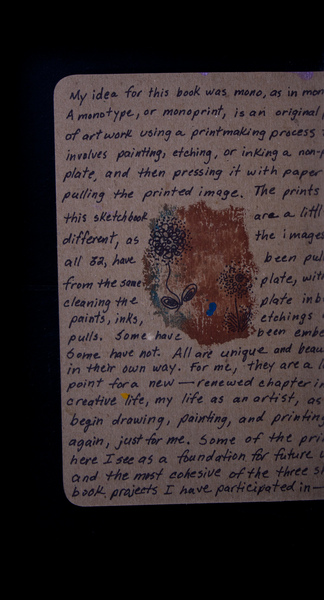 My idea for this book was mono, as in mon
A monotype, or monoprint, is an original
of artwork using a printmaking process
involves painting, etching, or inking a non-p
plate, and then pressing it with paper
pulling the printed image. The prints
this sketchbook are a littl
different, as the images
all 32, have been pul
from the same plate, with
cleaning the plate inb
paints, inks, etchings
pulls. Some have been embe
Some have not. All are unique and beau
in their own way. For me, they are a l
point for a new — renewed chapter in
creative life, my life as an artist, as
begin drawing, painting, and printing
again, just for me. Some of the prin
here I see as a foundation for future w
and the most cohesive of the three s
book projects I have participated in—